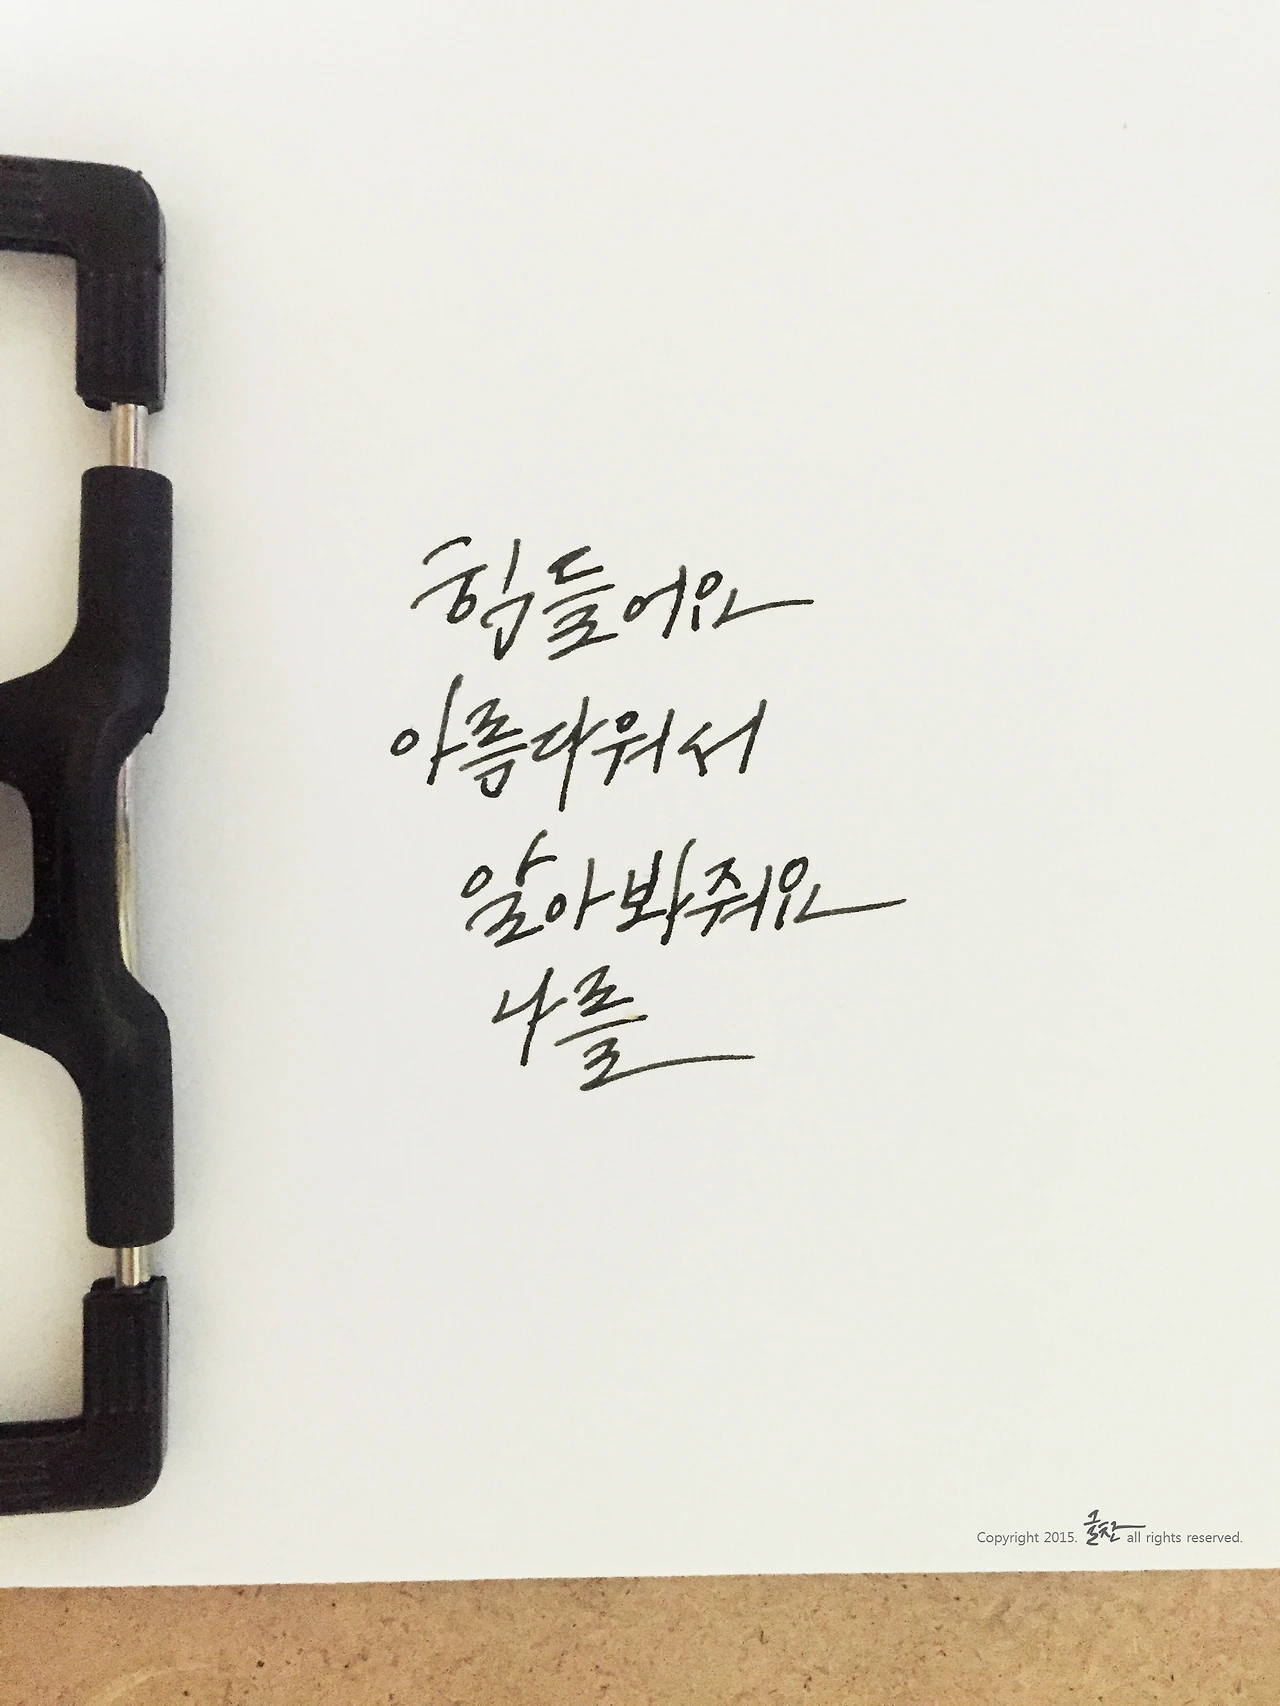 힘들어요
아름다워서
알아봐줘요
나를
Copyright 2015. 글찬 all rights reserved.